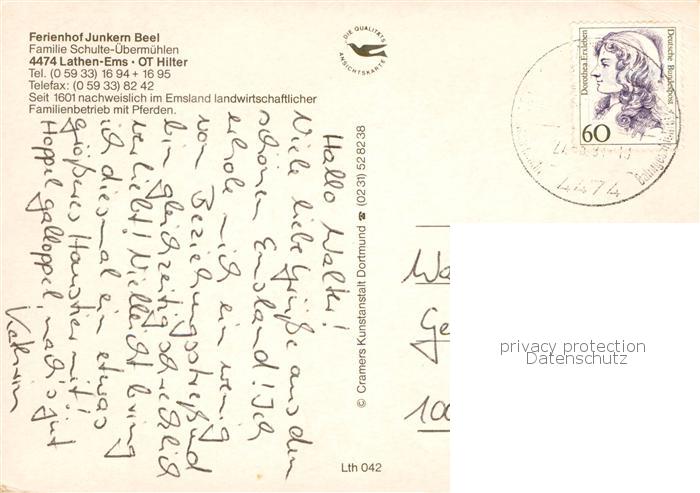 Ferienhof Junkern Beel
Familie Schulte-Übermühlen
4474 Lathen-Ems · OT Hilter
Tel. (0 59 33) 16 94 + 16 95
Telefax: (0 59 33) 82 42
Seit 1601 nachweislich im Emsland landwirtschaftlicher
Familienbetrieb mit Pferden.
Hallo Walter!
Viele liebe Grüße aus dem
schönen Emsland! Ich
erhole mich ein wenig
vom Beziehungsstreß und
bin gleichzeitig schrecklich
verliebt! Vielleicht bring
ich diesmal ein etwas
größeres Haustier mit!
Hoppel galloppel, mach's gut
Kathrin
DIE QUALITÄTS
ANSICHTSKARTE
© Cramers Kunstanstalt Dortmund ☎ (02 31) 52 82 38
Lth 042
Dorothea Erxleben
Deutsche Bundespost
60
4474
We
Ge
100
privacy protection
Datenschutz